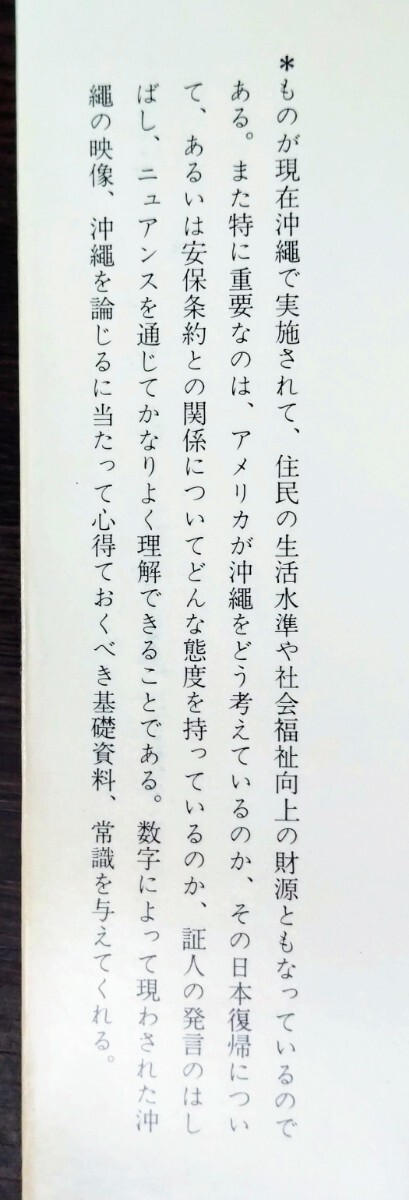 *ものが現在沖繩で実施されて、住民の生活水準や社会福祉向上の財源ともなっているので
ある。また特に重要なのは、アメリカが沖繩をどう考えているのか、その日本復帰につい
て、あるいは安保条約との関係についてどんな態度を持っているのか、証人の発言のはし
ばし、ニュアンスを通じてかなりよく理解できることである。数字によって現わされた沖
繩の映像、沖繩を論じるに当たって心得ておくべき基礎資料、常識を与えてくれる。